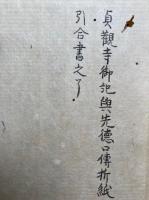 貞觀寺御記與先徳口傳折紙
引合書之了